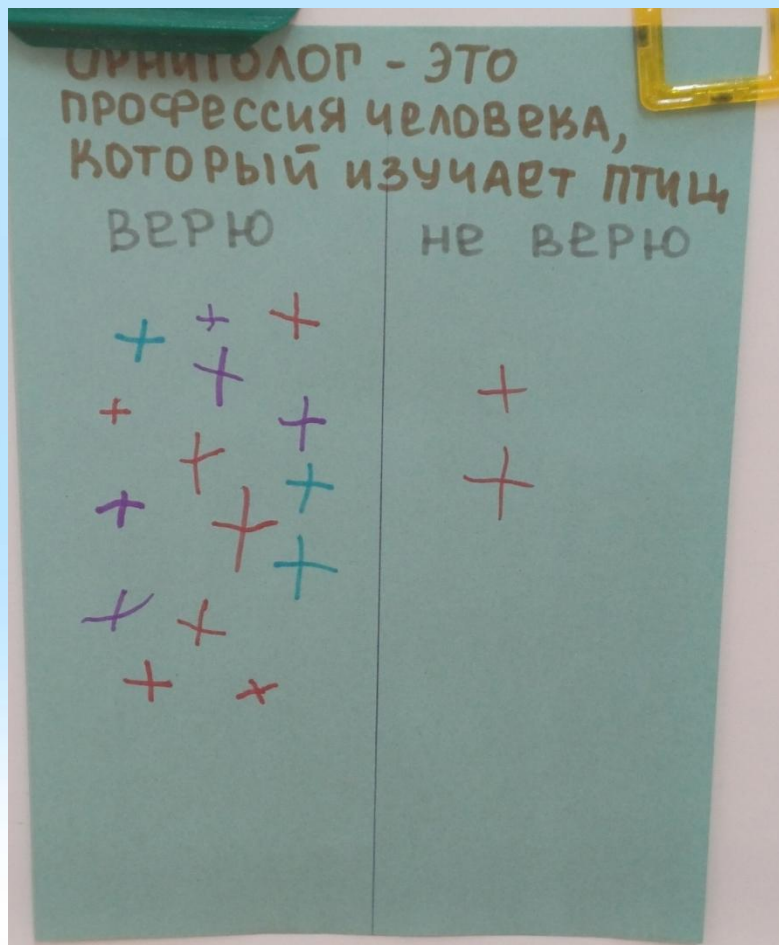 ОРНИТОЛОГ - ЭТО
ПРОФЕССИЯ ЧЕЛОВЕКА,
КОТОРЫЙ ИЗУЧАЕТ ПТИЦ
ВЕРЮ НЕ ВЕРЮ